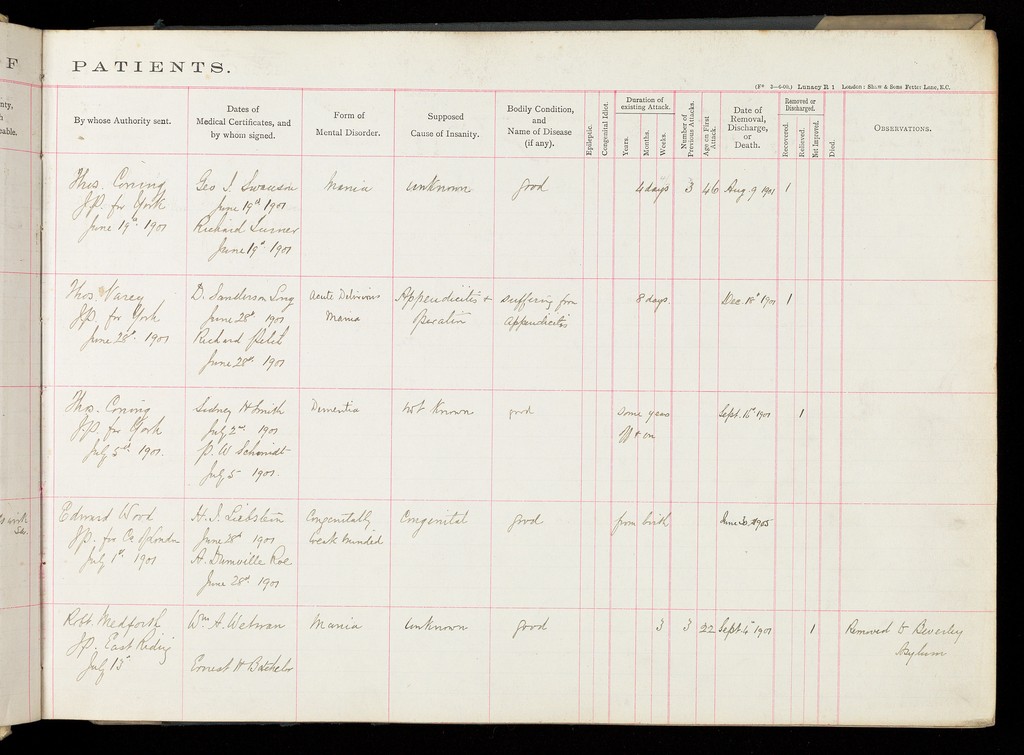 F
PATIENTS.
(F* 3—6-00.) Lunacy R 1 London: Shaw & Sons Fetter Lane, E.C.
nty,
able.
By whose Authority sent.
Dates of
Medical Certificates, and
by whom signed.
Form of
Mental Disorder.
Supposed
Cause of Insanity.
Bodily Condition,
and
Name of Disease
(if any).
Epileptic.
Congenital Idiot.
Duration of
existing Attack.
Years.
Months.
Weeks.
Number of
Previous Attacks.
Age on First
Attack.
Date of
Removal,
Discharge,
or
Death.
Removed or
Discharged.
Recovered.
Relieved.
Not Improved.
Died.
Observations.
Thos. Coning
J.P. for York
June 19th 1901
Geo S. Swanson
June 19th 1901
Richard Turner
June 19th 1901
Mania
unknown
good
4 days
3
46
Aug. 9 1901
1
Thos. Varey
J.P. for York
June 28th 1901
D. Sanderson Long
June 28th 1901
Richard Petit
June 28th 1901
Acute Delirious
Mania
Appendicitis &
operation
suffering from
Appendicitis
8 days.
Dec. 18th 1901
1
Thos. Coning
J.P. for York
July 5th 1901.
Sidney H Smith
July 2nd 1901
P. W Schmidt
July 5 1901
Dementia
not known
good
some years
off & on
Sept. 16th 1901
1
Edward Wood
J.P. for Co of London
July 1st 1901
H. J. Liebstein
June 28th 1901
A. Damville Roe
June 28th 1901
Congenitally
weak minded
Congenital
good
from birth
June 30. 1905
Robt. Medforth
J.P. East Riding
July 13th
Wm A. Wetwan
Ernest W Batchelor
Mania
unknown
good
3
3
22
Sept 4th 1901
1
Removed to Beverley
Asylum